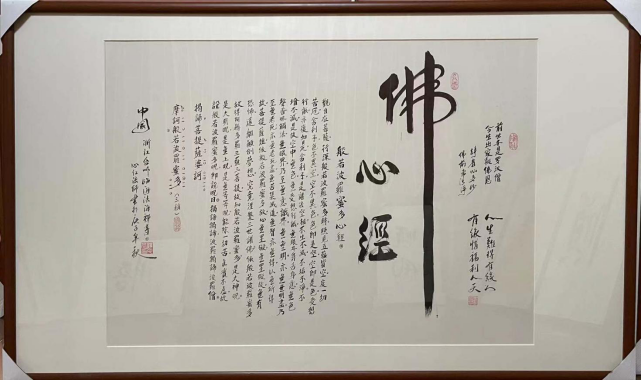 今生出家報佛恩
人生難得有緣人
佛心經
般若波羅蜜多心經
觀自在菩薩行深般若波羅蜜多時照見五蘊皆空度一切
苦厄舍利子色不異空空不異色色即是空空即是色受想
行識亦復如是舍利子是諸法空相不生不滅不垢不淨不
增不減是故空中無色無受想行識無眼耳鼻舌身意無色
聲香味觸法無眼界乃至無意識界無無明亦無無明盡乃
至無老死亦無老死盡無苦集滅道無智亦無得以無所得
故菩提薩埵依般若波羅蜜多故心無罣礙無罣礙故無有
恐怖遠離顛倒夢想究竟涅槃三世諸佛依般若波羅蜜多
故得阿耨多羅三藐三菩提故知般若波羅蜜多是大神咒
是大明咒是無上咒是無等等咒能除一切苦真實不虛故
說般若波羅蜜多咒即說咒曰揭諦揭諦波羅揭諦波羅僧
揭諦菩提薩婆訶
摩訶般若波羅蜜多(三稱)
中國 浙江台州臨海法海禪寺
心仁法師書於庚子年秋